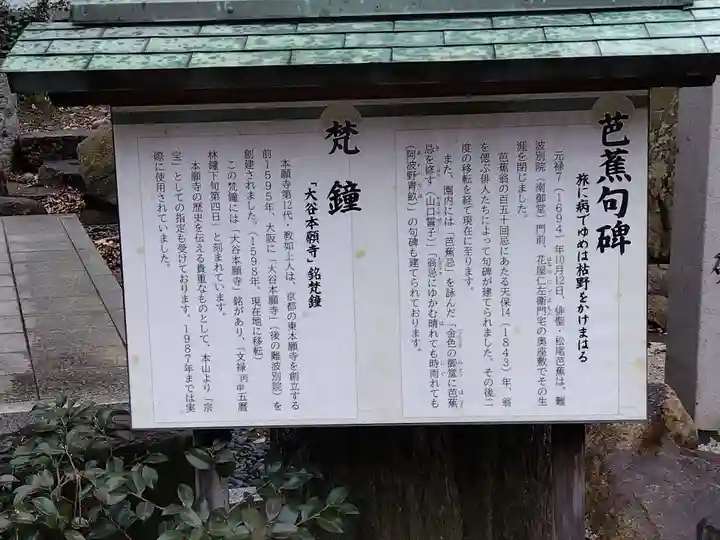 芭蕉句碑
旅に病てゆめは枯野をかけまはる
元禄7（1694）年10月12日、俳聖・松尾芭蕉は、難
波別院（南御堂）門前、花屋仁左衛門宅の奥座敷でその生
涯を閉じました。
芭蕉翁の百五十回忌にあたる天保14（1843）年、翁
を偲ぶ俳人たちによって句碑が建てられました。その後二
度の移転を経て現在に至ります。
また、園内には「芭蕉忌」を詠んだ「金色の御堂に芭蕉
忌を修す（山口誓子）」「翁忌にゆかむ晴れても時雨れても
（阿波野青畝）」の句碑も建てられております。
梵鐘
「大谷本願寺」銘梵鐘
本願寺第12代・教如上人は、京都の東本願寺を創立する
前1595年、大阪に「大谷本願寺」（後の難波別院）を
創建されました。（1598年、現在地に移転）
この梵鐘には「大谷本願寺」銘があり、「文禄丙申五暦
林鐘下旬第四日」と刻まれています。
本願寺の歴史を伝える貴重なものとして、本山より「宗
宝」としての指定も受けております。1987年までは実
際に使用されていました。